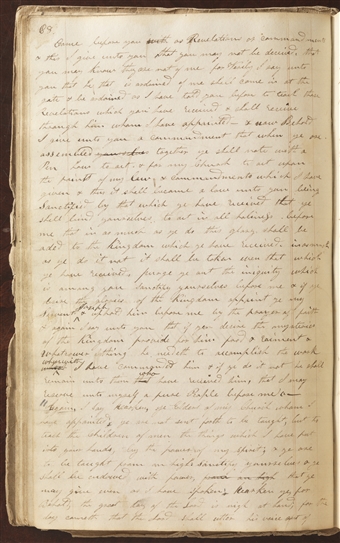 68
come before you with as Revelations or commandment
& this I give unto you that you may not be deceived, that
you may know they are not of me for Verily I say unto
you that he that is ordained of me shall come in at the
gate & be ordained as I have told you before to teach those
Revelations which you have received & shall receive
through him whom I have appointed & now Behold
I give unto you a commandment that when ye are
assembled together ye shall note with a
Pen how to act & for my Church to act upon
the points of my Law & commandments which I have
given & thus it shall become a Law unto you being
Sanctified by that which ye have received that ye
shall bind yourselves to act in all holiness before
me that in as much as ye do this glory shall be
added to the Kingdom which ye have received in as much
as ye do it not it shall be taken even that which
ye have received purge ye out the iniquity which
is among you Sanctify yourselves before me & if ye
desire the glories of the Kingdom appoint ye my
Servent Joseph & uphold him before me by the prayer of faith
& again I say unto you that if you desire the mysteries
of the Kingdom provide for him food & raiment &
whatsoever thing he needeth to accomplish the work
wherewith I have commanded him & if ye do it not he shall
remain unto them who have received him that I may
reserve unto myself a pure People before me
Again I say hearken ye Elders of my Church whom I
have appointed ye are not sent forth to be taught but to
teach the children of men the things which I have put
into your hands by the power of my Spirit & ye are
to be taught from on high Sanctify yourselves & ye
shall be endowed with power that ye
may give even as I have spoken Hearken ye for
Behold the great day of the Lord is nigh at hand for the
day cometh that the Lord shall utter his voice out of